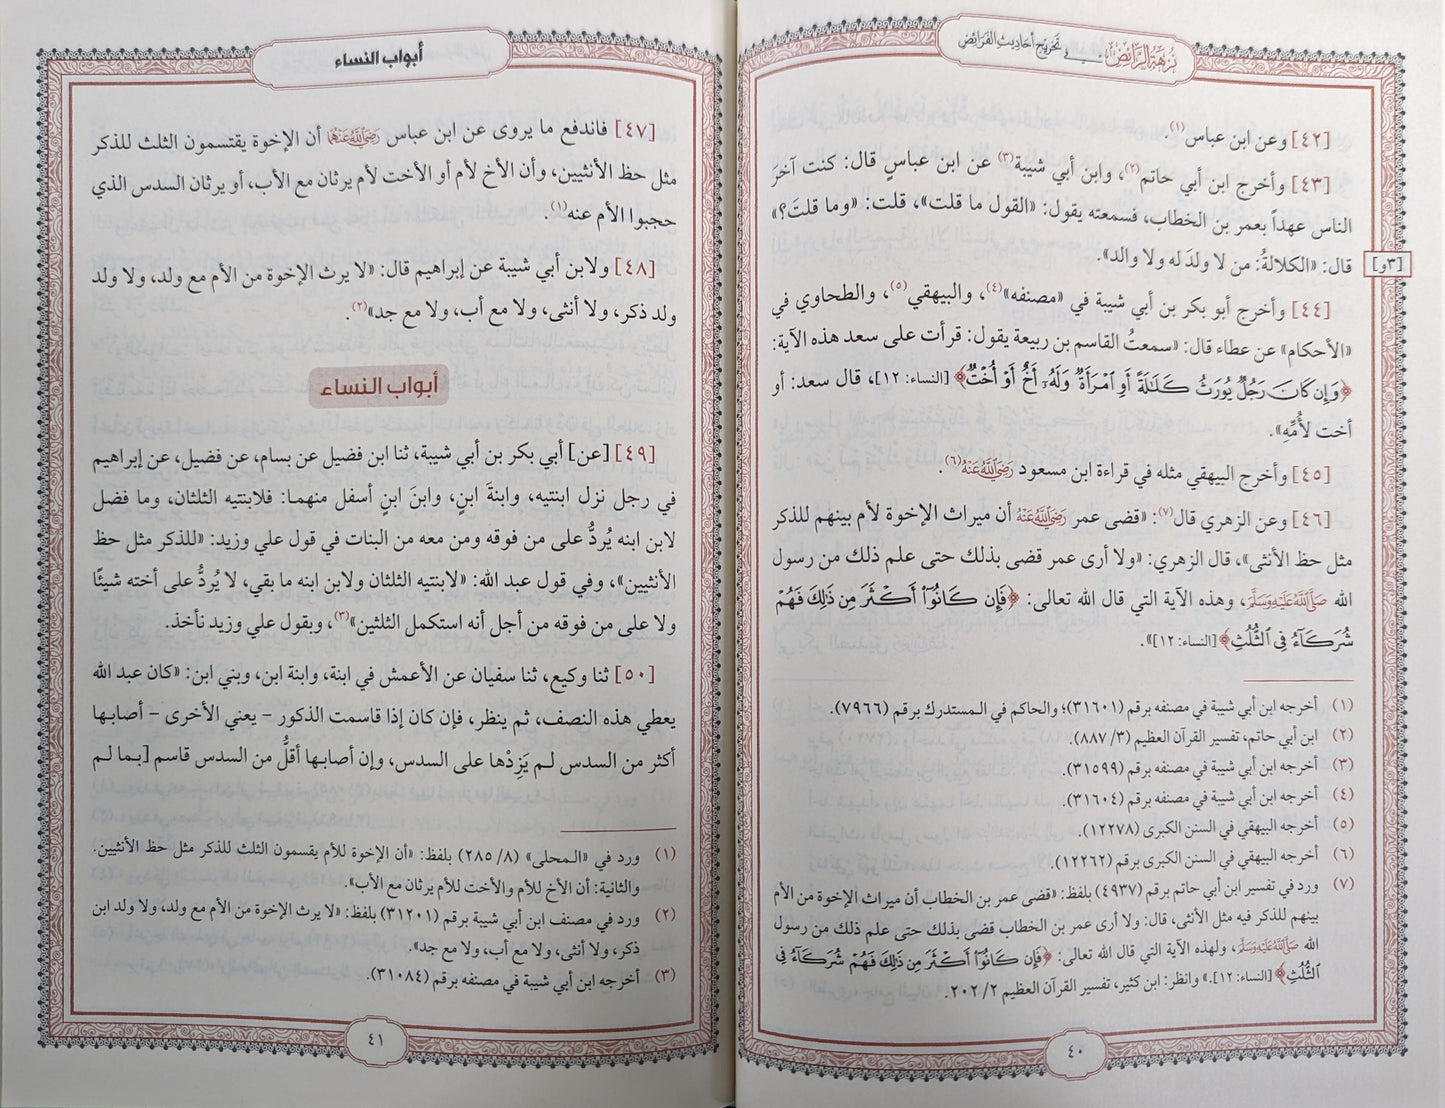 نزهة الرائض في تخريج أحاديث الفرائض
[٤٢] وعن ابن عباس(١).
[٤٣] وأخرج ابن أبي حاتم(٢)، وابن أبي شيبة(٣) عن ابن عباسٍ قال: كنت آخرَ
الناس عهداً بعمر بن الخطاب، فسمعته يقول: «القول ما قلت»، قلت: «وما قلتَ؟»
[٣و] قال: «الكلالةُ: من لا ولدَ له ولا والد».
[٤٤] وأخرج أبو بكر بن أبي شيبة في «مصنفه»(٤)، والبيهقي(٥)، والطحاوي في
«الأحكام» عن عطاء قال: «سمعتُ القاسم بن ربيعة يقول: قرأت على سعد هذه الآية:
﴿وَإِن كَانَ رَجُلٌ يُورَثُ كَلَٰلَةً أَوِ ٱمْرَأَةٌ وَلَهُۥٓ أَخٌ أَوْ أُخْتٌ﴾ [النساء: ١٢]، قال سعد: أو
أخت لأُمِّهِ».
[٤٥] وأخرج البيهقي مثله في قراءة ابن مسعود رَضِيَ اللَّهُ عَنْهُ(٦).
[٤٦] وعن الزهري قال(٧): «قضى عمر رَضِيَ اللَّهُ عَنْهُ أن ميراث الإخوة لأم بينهم للذكر
مثل حظ الأنثى»، قال الزهري: «ولا أرى عمر قضى بذلك حتى علم ذلك من رسول
الله صَلَّى اللَّهُ عَلَيْهِ وَسَلَّمَ، وهذه الآية التي قال الله تعالى: ﴿فَإِن كَانُوٓا۟ أَكْثَرَ مِن ذَٰلِكَ فَهُمْ
شُرَكَآءُ فِى ٱلثُّلُثِ﴾ [النساء: ١٢]».
(١) أخرجه ابن أبي شيبة في مصنفه برقم (٣١٦٠١)؛ والحاكم في المستدرك برقم (٧٩٦٦).
(٢) ابن أبي حاتم، تفسير القرآن العظيم (٣/ ٨٨٧).
(٣) أخرجه ابن أبي شيبة في مصنفه برقم (٣١٥٩٩).
(٤) أخرجه ابن أبي شيبة في مصنفه برقم (٣١٦٠٤).
(٥) أخرجه البيهقي في السنن الكبرى برقم (١٢٢٧٨).
(٦) أخرجه البيهقي في السنن الكبرى برقم (١٢٢٦٢).
(٧) ورد في تفسير ابن أبي حاتم برقم (٤٩٣٧) بلفظ: «قضى عمر بن الخطاب أن ميراث الإخوة من الأم
بينهم للذكر فيه مثل الأنثى، قال: ولا أرى عمر بن الخطاب قضى بذلك حتى علم ذلك من رسول
الله صَلَّى اللَّهُ عَلَيْهِ وَسَلَّمَ، ولهذه الآية التي قال الله تعالى: ﴿فَإِن كَانُوٓا۟ أَكْثَرَ مِن ذَٰلِكَ فَهُمْ شُرَكَآءُ فِى
ٱلثُّلُثِ﴾ [النساء: ١٢].» وانظر: ابن كثير، تفسير القرآن العظيم ٢/ ٢٠٢.
٤٠
أبواب النساء
[٤٧] فاندفع ما يروى عن ابن عباس رَضِيَ اللَّهُ عَنْهُمَا أن الإخوة يقتسمون الثلث للذكر
مثل حظ الأنثيين، وأن الأخ لأم أو الأخت لأم يرثان مع الأب، أو يرثان السدس الذي
حجبوا الأم عنه(١).
[٤٨] ولابن أبي شيبة عن إبراهيم قال: «لا يرث الإخوة من الأم مع ولد، ولا ولد
ولد ذكر، ولا أنثى، ولا مع أب، ولا مع جد»(٢).
أبواب النساء
[٤٩] [عن] أبي بكر بن أبي شيبة، ثنا ابن فضيل عن بسام، عن فضيل، عن إبراهيم
في رجل نزل ابنتيه، وابنةَ ابنٍ، وابنَ ابنٍ أسفل منهما: فلابنتيه الثلثان، وما فضل
لابن ابنه يُردُّ على من فوقه ومن معه من البنات في قول علي وزيد: «للذكر مثل حظ
الأنثيين»، وفي قول عبد الله: «لابنتيه الثلثان ولابن ابنه ما بقي، لا يُردُّ على أخته شيئًا
ولا على من فوقه من أجل أنه استكمل الثلثين»(٣)، وبقول علي وزيد نأخذ.
[٥٠] ثنا وكيع، ثنا سفيان عن الأعمش في ابنة، وابنة ابن، وبني ابن: «كان عبد الله
يعطي هذه النصف، ثم ينظر، فإن كان إذا قاسمت الذكور - يعني الأخرى - أصابها
أكثر من السدس لم يَزِدْها على السدس، وإن أصابها أقلُّ من السدس قاسم [بما لم
(١) ورد في «المحلى» (٨/ ٢٨٥) بلفظ: «أن الإخوة للأم يقسمون الثلث للذكر مثل حظ الأنثيين.
والثانية: أن الأخ للأم والأخت للأم يرثان مع الأب».
(٢) ورد في مصنف ابن أبي شيبة برقم (٣١٢٠١) بلفظ: «لا يرث الإخوة من الأم مع ولد، ولا ولد ابن
ذكر، ولا أنثى، ولا مع أب، ولا مع جد».
(٣) أخرجه ابن أبي شيبة في مصنفه برقم (٣١٠٨٤).
٤١